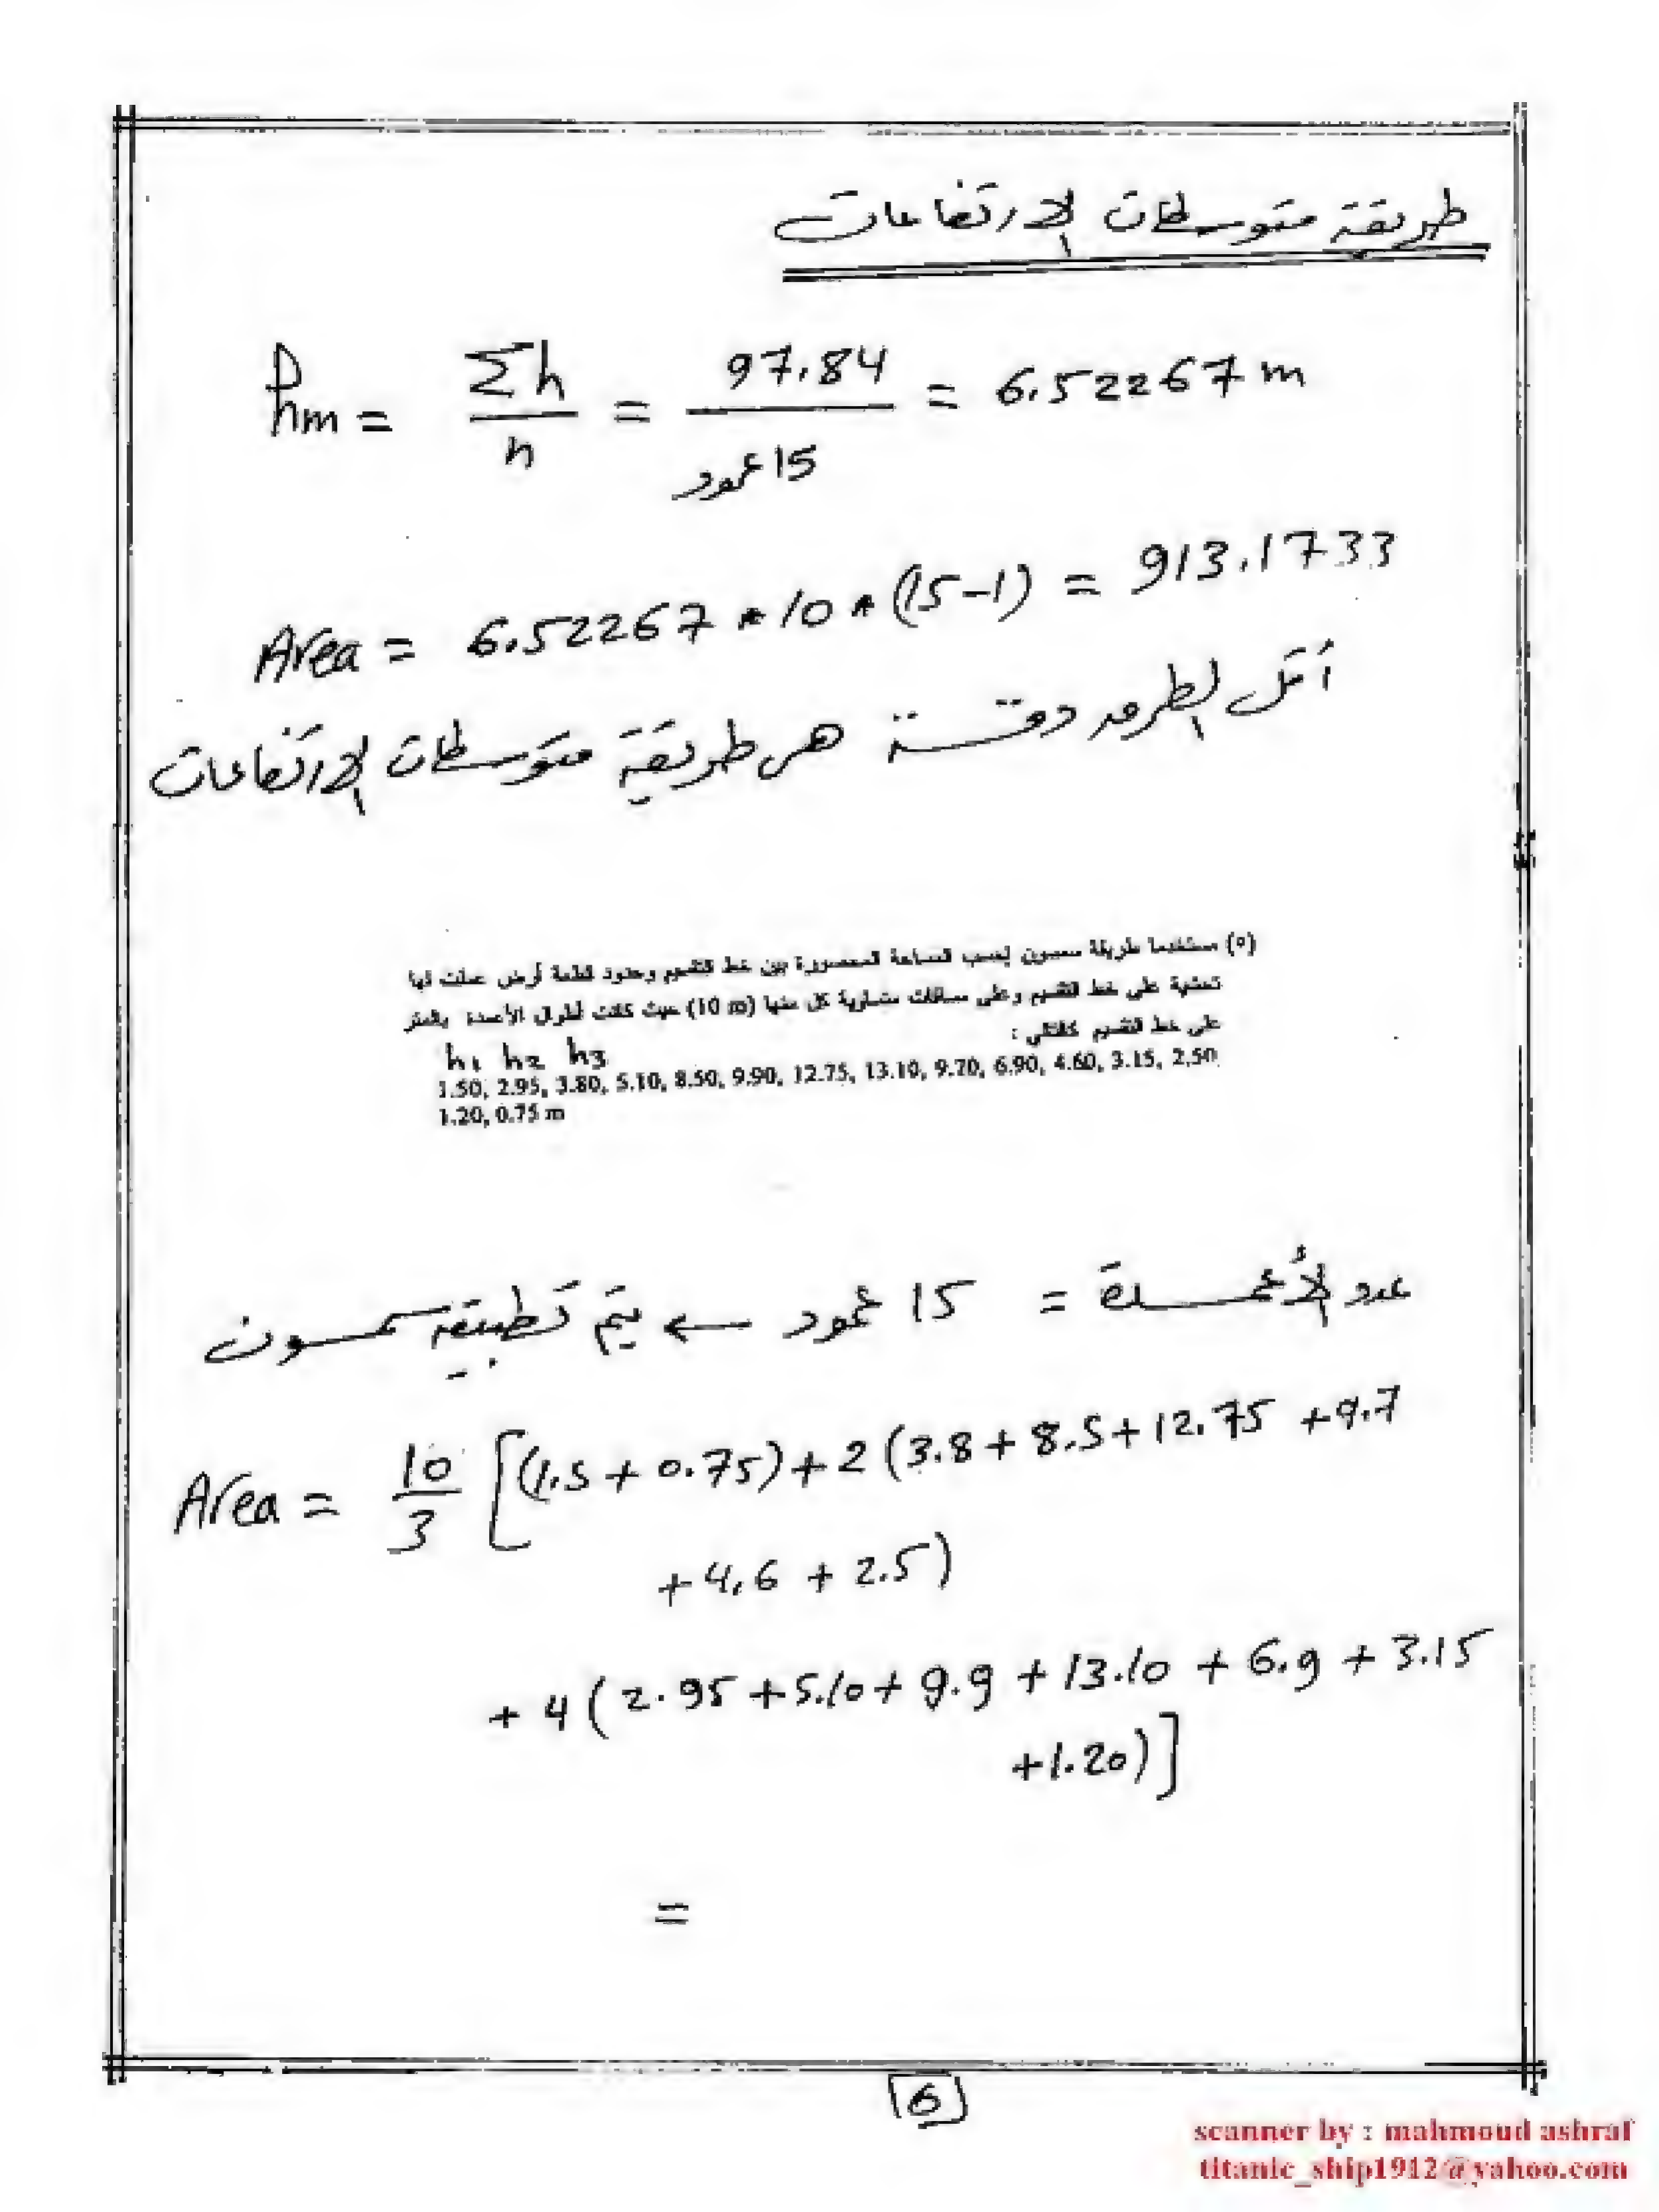 طريقة متوسطات الارتفاعات
hm = Σh / n = 97.84 / 15 عمود = 6.52267 m
Area = 6.52267 * 10 * (15-1) = 913.1733
أقل الطرق دقة هى طريقة متوسطات الارتفاعات
(٥) مستخدما طريقة سمسون إحسب المساحة المحصورة بين خط التقسيم وحدود قطعة أرض عملت لها
تحشية على خط التقسيم وعلى مسافات متساوية كل منها (10 m) حيث كانت أطوال الأعمدة بالمتر
على خط التقسيم كالتالي :
h1 h2 h3
1.50, 2.95, 3.80, 5.10, 8.50, 9.90, 12.75, 13.10, 9.70, 6.90, 4.60, 3.15, 2.50
1.20, 0.75 m
عدد الأعمدة = 15 عمود ← يتم تطبيق سمسون
Area = 10/3 [(1.5 + 0.75) + 2 (3.8 + 8.5 + 12.75 + 9.7
+ 4.6 + 2.5)
+ 4 (2.95 + 5.10 + 9.9 + 13.10 + 6.9 + 3.15
+1.20)]
=
6
scanner by : mahmoud ashraf
titanic_ship1912@yahoo.com